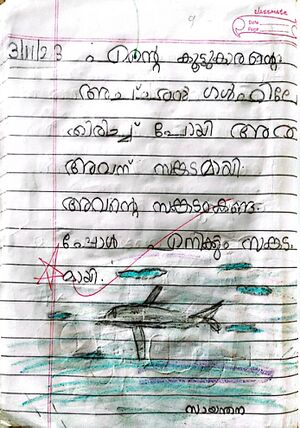 classmate
Date
Page
3/11/23 എന്റെ കൂട്ടുകാരന്റെ
അച്ഛൻ ഗൾഫിലേ
തിരിച്ച് പോയി അത
അവന് സങ്കടമായി
അവന്റെ സങ്കടം കണ്ട
പ്പോൾ എനിക്കും സങ്കട
മായി.
സായന്തന